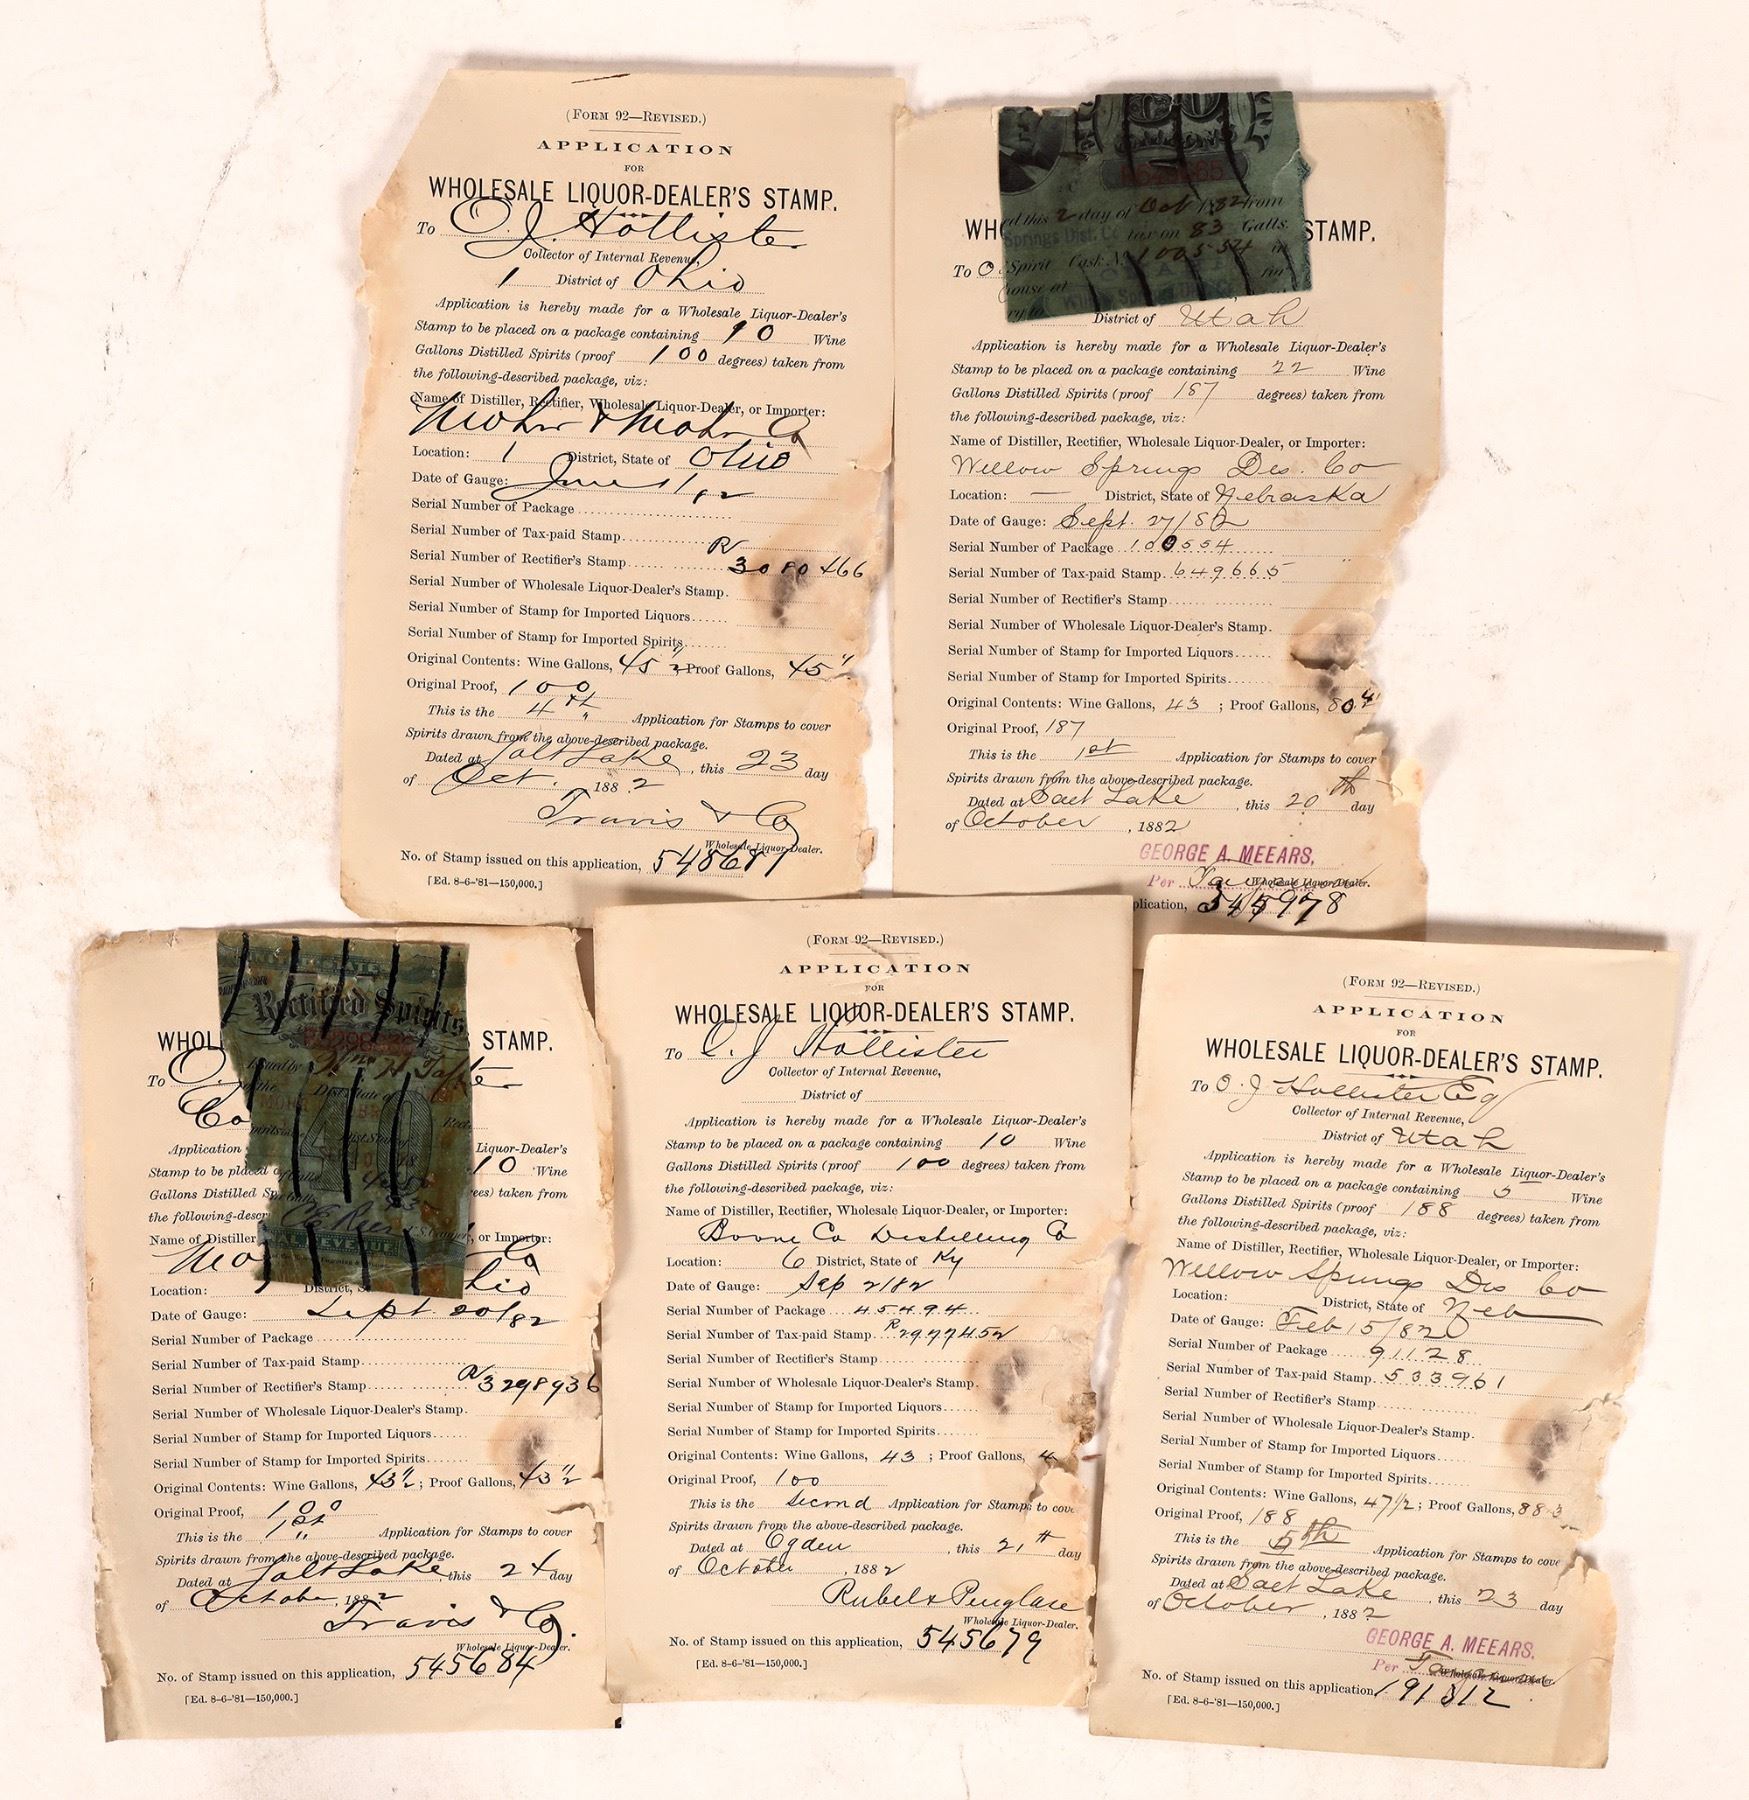 (FORM 92—REVISED.)
APPLICATION
FOR
WHOLESALE LIQUOR-DEALER'S STAMP.
To O. J. Hollister
Collector of Internal Revenue,
1 District of Ohio
Application is hereby made for a Wholesale Liquor-Dealer's
Stamp to be placed on a package containing 10 Wine
Gallons Distilled Spirits (proof 100 degrees) taken from
the following-described package, viz:
Name of Distiller, Rectifier, Wholesale Liquor-Dealer, or Importer:
Mohr & Mohr Co
Location: 1 District, State of Ohio
Date of Gauge: June
Serial Number of Package
Serial Number of Tax-paid Stamp
Serial Number of Rectifier's Stamp R 3080466
Serial Number of Wholesale Liquor-Dealer's Stamp.
Serial Number of Stamp for Imported Liquors
Serial Number of Stamp for Imported Spirits
Original Contents: Wine Gallons, 45 ; Proof Gallons, 45
Original Proof, 100
This is the 4th Application for Stamps to cover
Spirits drawn from the above-described package.
Dated at Salt Lake, this 23 day
of Oct. 1882
Travis & Co
Wholesale Liquor-Dealer.
No. of Stamp issued on this application, 545687
[Ed. 8-6-'81—150,000.]
ed this 2 day of Oct 1882 from
Springs Dist. Co tax on 83 Galls.
Spirit Cask No 100554 in
ouse at
WH STAMP.
To O
District of Utah
Application is hereby made for a Wholesale Liquor-Dealer's
Stamp to be placed on a package containing 22 Wine
Gallons Distilled Spirits (proof 187 degrees) taken from
the following-described package, viz:
Name of Distiller, Rectifier, Wholesale Liquor-Dealer, or Importer:
Willow Springs Dis. Co
Location: — District, State of Nebraska
Date of Gauge: Sept. 27/82
Serial Number of Package 100554
Serial Number of Tax-paid Stamp 649665
Serial Number of Rectifier's Stamp
Serial Number of Wholesale Liquor-Dealer's Stamp.
Serial Number of Stamp for Imported Liquors
Serial Number of Stamp for Imported Spirits
Original Contents: Wine Gallons, 43 ; Proof Gallons, 80
Original Proof, 187
This is the 1st Application for Stamps to cover
Spirits drawn from the above-described package.
Dated at Salt Lake, this 20th day
of October, 1882
GEORGE A. MEEARS,
Per
Wholesale Liquor-Dealer.
plication, 545978
Rectified Spirits
40
WHOL STAMP.
To O.
Co
Application Liquor-Dealer's
Stamp to be placed 10 Wine
Gallons Distilled Sp ees) taken from
the following-descr
Name of Distiller , or Importer:
Mo Co
Location: District, S hio
Date of Gauge: Sept 20/82
Serial Number of Package
Serial Number of Tax-paid Stamp
Serial Number of Rectifier's Stamp R 3298936
Serial Number of Wholesale Liquor-Dealer's Stamp.
Serial Number of Stamp for Imported Liquors
Serial Number of Stamp for Imported Spirits
Original Contents: Wine Gallons, 43½ ; Proof Gallons, 43½
Original Proof, 100
This is the 1st Application for Stamps to cover
Spirits drawn from the above-described package.
Dated at Salt Lake, this 24 day
of October, 1882
Travis & Co.
Wholesale Liquor-Dealer.
No. of Stamp issued on this application, 545684
[Ed. 8-6-'81—150,000.]
(FORM 92—REVISED.)
APPLICATION
FOR
WHOLESALE LIQUOR-DEALER'S STAMP.
To O. J. Hollister
Collector of Internal Revenue,
District of
Application is hereby made for a Wholesale Liquor-Dealer's
Stamp to be placed on a package containing 10 Wine
Gallons Distilled Spirits (proof 100 degrees) taken from
the following-described package, viz:
Name of Distiller, Rectifier, Wholesale Liquor-Dealer, or Importer:
Boone Co Distilling Co
Location: 6 District, State of Ky
Date of Gauge: Sep 2/82
Serial Number of Package 45494
Serial Number of Tax-paid Stamp R 2977452
Serial Number of Rectifier's Stamp
Serial Number of Wholesale Liquor-Dealer's Stamp.
Serial Number of Stamp for Imported Liquors
Serial Number of Stamp for Imported Spirits
Original Contents: Wine Gallons, 43 ; Proof Gallons, 4
Original Proof, 100
This is the Second Application for Stamps to cov
Spirits drawn from the above-described package.
Dated at Ogden, this 21th day
of October, 1882
Rubel & Penglase
Wholesale Liquor-Dealer.
No. of Stamp issued on this application, 545679
[Ed. 8-6-'81—150,000.]
(FORM 92—REVISED.)
APPLICATION
FOR
WHOLESALE LIQUOR-DEALER'S STAMP.
To O. J. Hollister Esq
Collector of Internal Revenue,
District of Utah
Application is hereby made for a Wholesale Liquor-Dealer's
Stamp to be placed on a package containing 5 Wine
Gallons Distilled Spirits (proof 188 degrees) taken from
the following-described package, viz:
Name of Distiller, Rectifier, Wholesale Liquor-Dealer, or Importer:
Willow Springs Dis Co
Location: District, State of Neb
Date of Gauge: Feb 15/82
Serial Number of Package 91128
Serial Number of Tax-paid Stamp 533961
Serial Number of Rectifier's Stamp
Serial Number of Wholesale Liquor-Dealer's Stamp.
Serial Number of Stamp for Imported Liquors
Serial Number of Stamp for Imported Spirits
Original Contents: Wine Gallons, 47½ ; Proof Gallons, 88-3
Original Proof, 188
This is the 5th Application for Stamps to cove
Spirits drawn from the above-described package.
Dated at Salt Lake, this 23 day
of October, 1882
GEORGE A. MEEARS.
Per
Wholesale Liquor-Dealer.
No. of Stamp issued on this application, 191312
[Ed. 8-6-'81—150,000.]